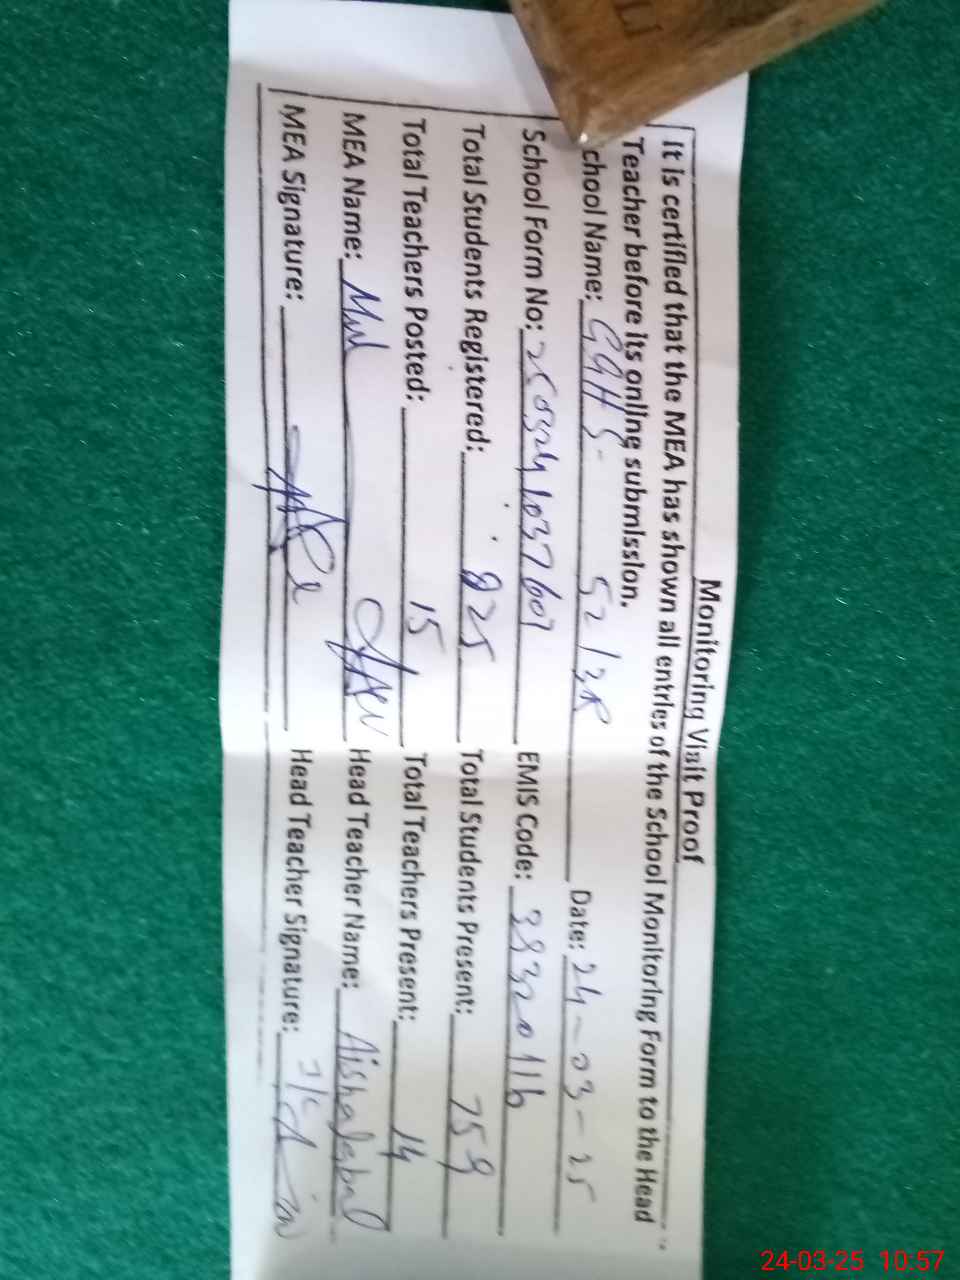 Monitoring Visit Proof
It is certified that the MEA has shown all entries of the School Monitoring Form to the Head
Teacher before its online submission.
chool Name: GGHS- 52/3R Date: 24-03-25
School Form No: 2503241037607 EMIS Code: 38320116
Total Students Registered: 825 Total Students Present: 759
Total Teachers Posted: 15 Total Teachers Present: 14
MEA Name: Head Teacher Name: Aisha Iqbal
MEA Signature: Head Teacher Signature: I/C
24-03-25 10:57